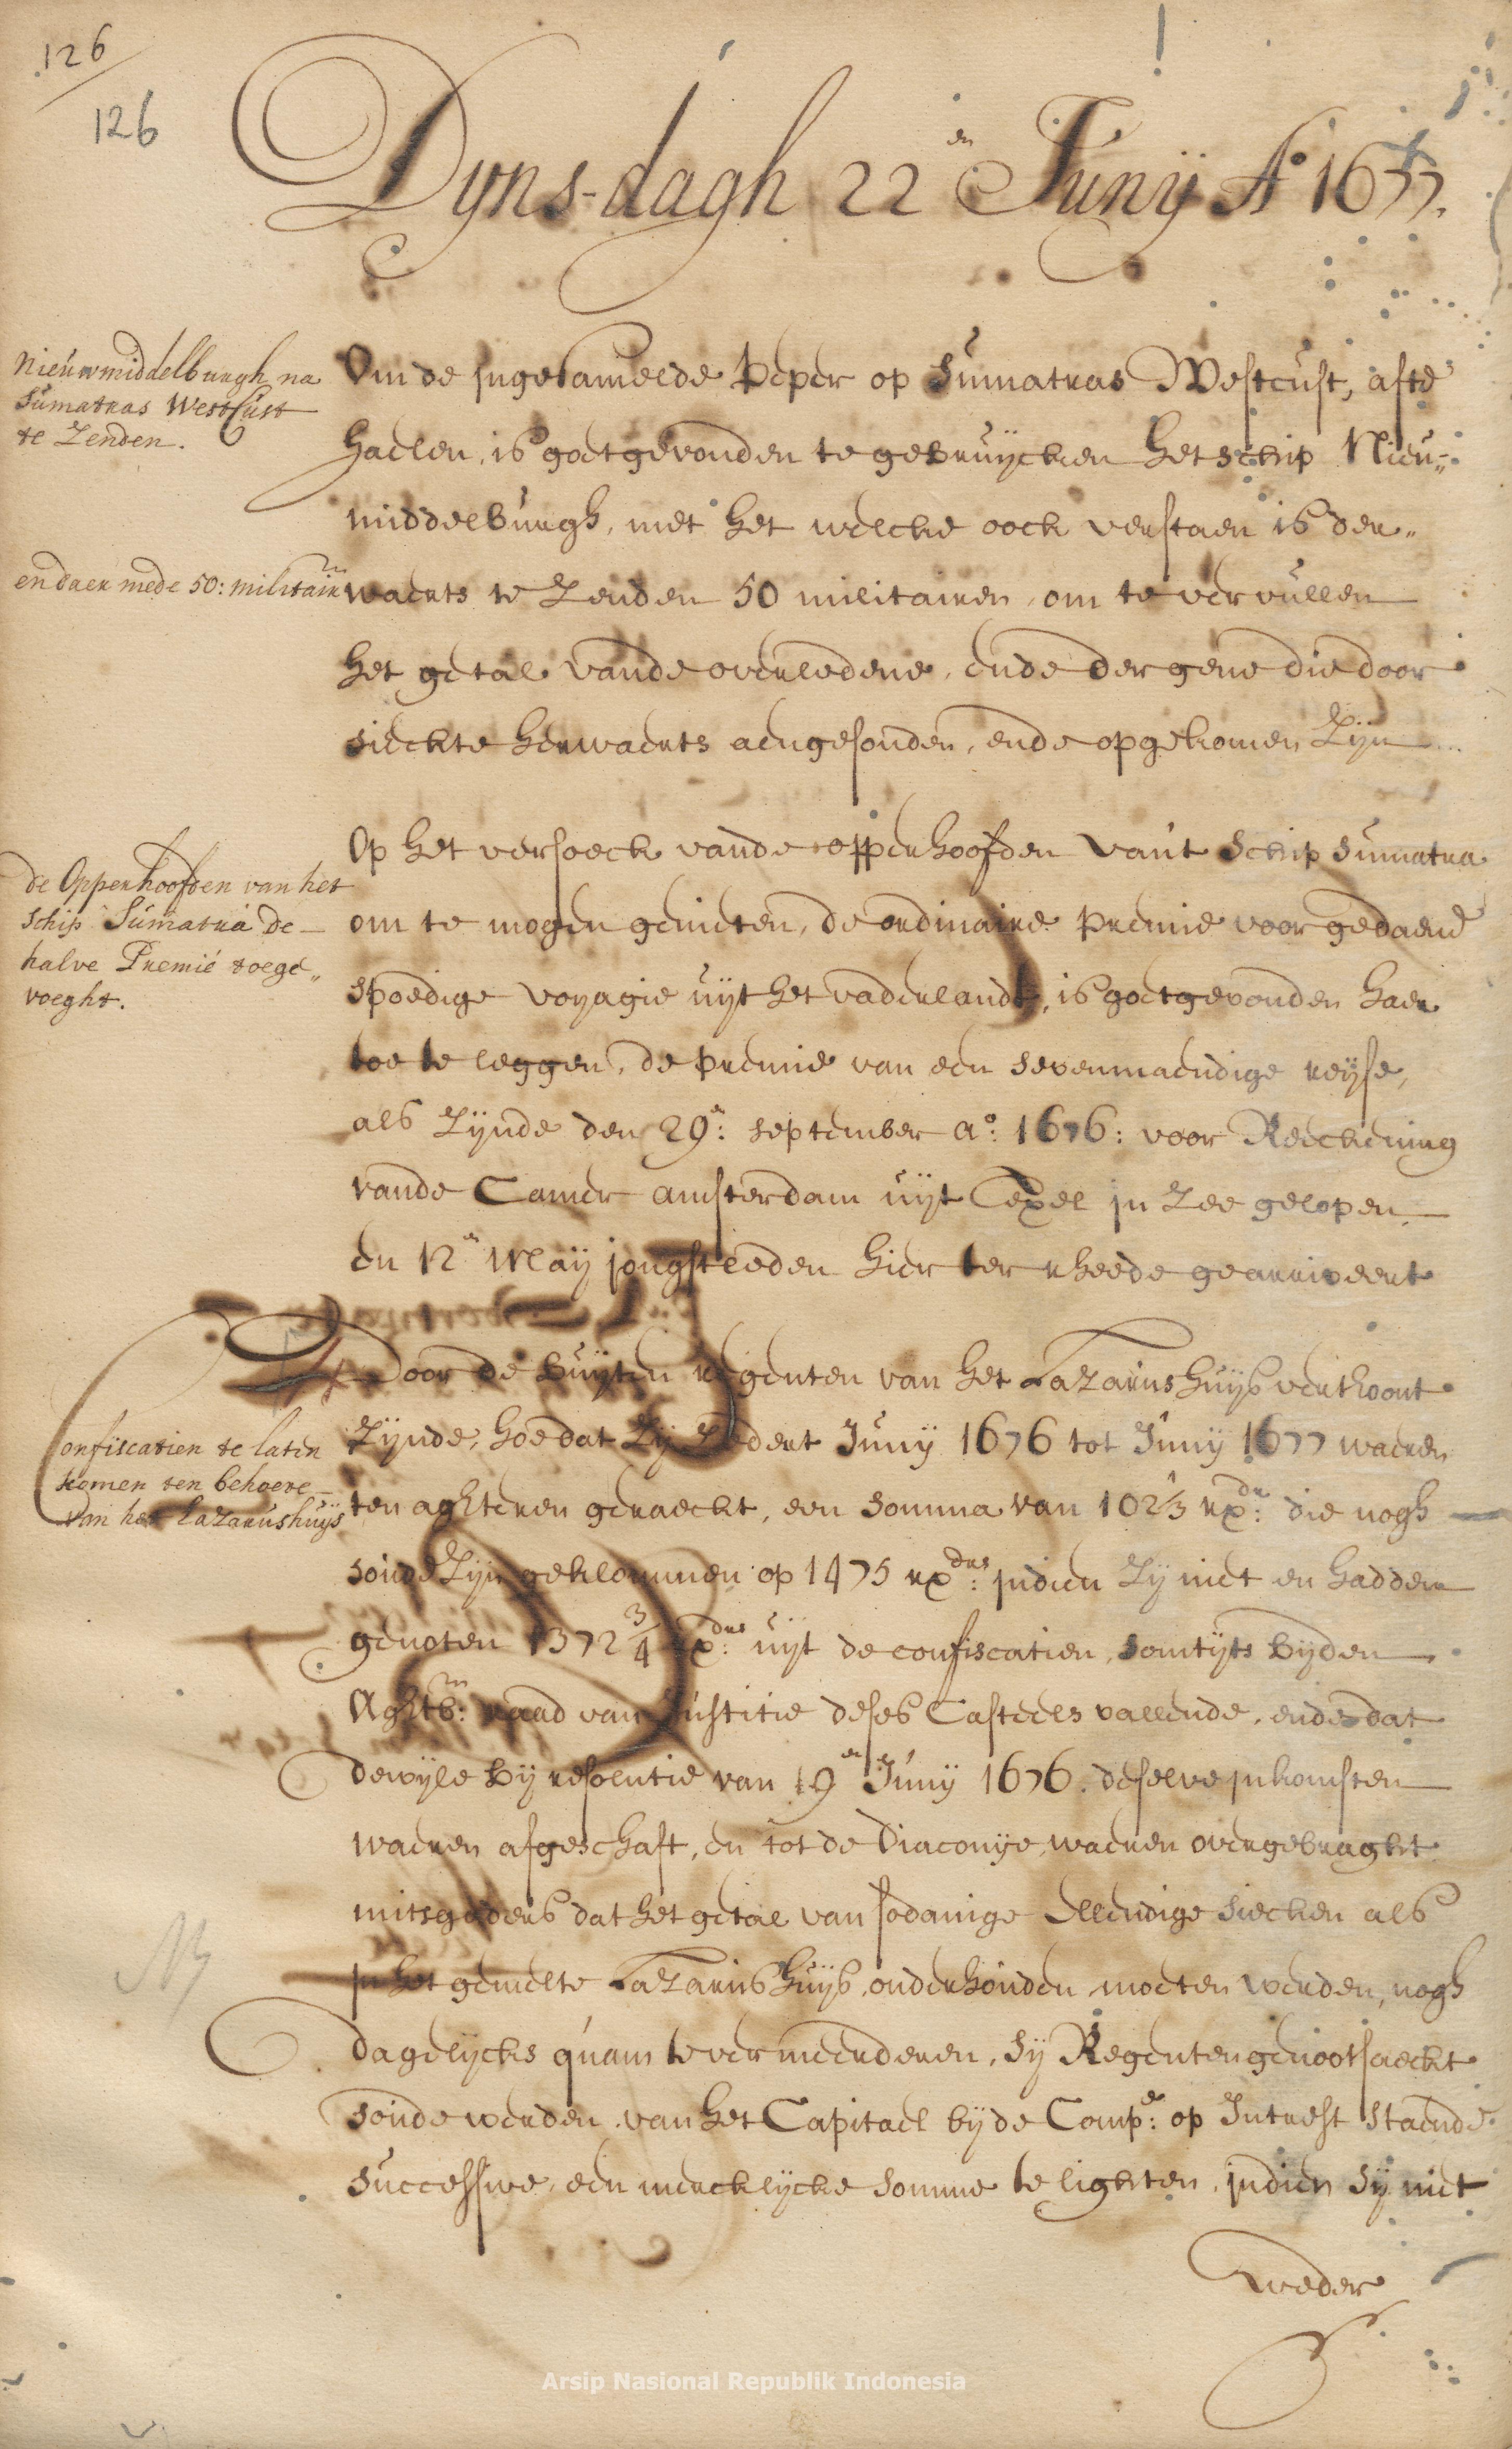 126
126
Dyns-dagh 22en Junij Ao 1677.
Nieuwmiddelburgh na
Sumatras West Cust
te Zenden.
Om de Ingesamelde Peper op Sumatras Westcust, af te
haelen, is goetgevonden te gebruijcken het schip Nieu-
middelburgh, met het welcke oock verstaen is der-
en daer mede 50: militairen
waerts te Zenden 50 militairen, om te vervullen
het getal vande overledene, ende der gene die door
sieckte herwaerts aengesonden, ende opgekomen Zijn
de Opperhoofden van het
schip Sumatra de
halve Premie toege„
voeght.
Op het versoeck vande opperhoofden van't schip Sumatra
om te mogen genieten, de ordinaire premie voor gedaene
spoedige voyagie uijt het vaderlandt, is goetgevonden haer
toe te leggen, de premie van een sevenmaendige reijse,
als Zijnde den 29en: september ao: 1676: voor Reeckening
vande Camer amsterdam uijt Texel in Zee gelopen,
en 12en Maij jongstleeden hier ter rheede gearriveert
Confiscatien te laten
komen ten behoeve
van het Lazarushuijs
Door de buijten regenten van het Lazarus huijs verthoont
Zijnde, hoe dat Zij Zedert Junij 1676 tot Junij 1677 waeren
ten aghteren geraeckt, een somma van 102 1/3 rxdr: die nogh
soude Zijn geklommen op 1475 rxdrs: indien Zij niet en hadden
genoten 1372 3/4 rxdrs: uijt de confiscatien, somtijts bijden
Aghtbren: raad van Justitie deses Casteels vallende, ende dat
dewijle bij resolutie van 19en Junij 1676. deselve inkomsten
waeren afgeschaft, en tot de Diaconije waeren overgebraght
mitsgaders dat het getal van sodanige Ellendige siecken als
in het gemelte Lazarus huijs, onderhouden moeten werden, nogh
dagelijcks quam te vermeerderen, sij Regenten genootsaeckt
soude werden van het Capitael bij de Compe: op Intrest staende
successive, een mercklijcke somme te lighten, indien sij niet
weder
Arsip Nasional Republik Indonesia